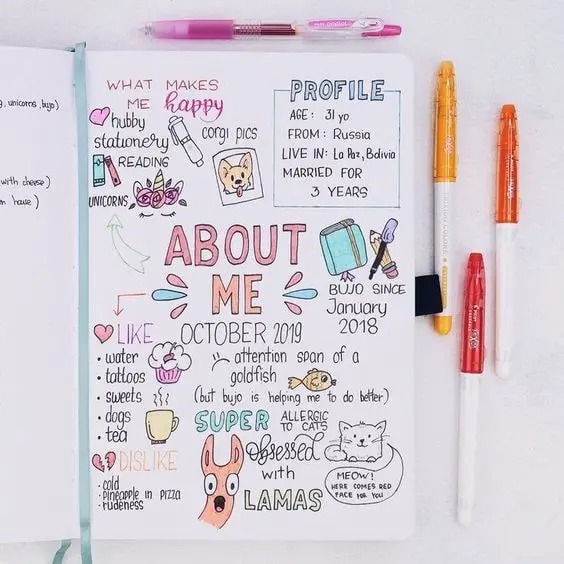 , unicorns, bujo)
with cheese)
house)
WHAT MAKES
ME happy
hubby
stationery
corgi pics
READING
UNICORNS
PROFILE
AGE: 31 yo
FROM: Russia
LIVE IN: La Paz, Bolivia
MARRIED FOR
3 YEARS
ABOUT
ME
BUJO SINCE
January
2018
LIKE
• water
• tattoos
• sweets
• dogs
• tea
DISLIKE
• cold
• pineapple in pizza
• rudeness
OCTOBER 2019
attention span of a
goldfish
(but bujo is helping me to do better)
SUPER ALLERGIC
TO CATS
obsessed
with
LAMAS
MEOW!
HERE COMES RED
FACE FOR YOU